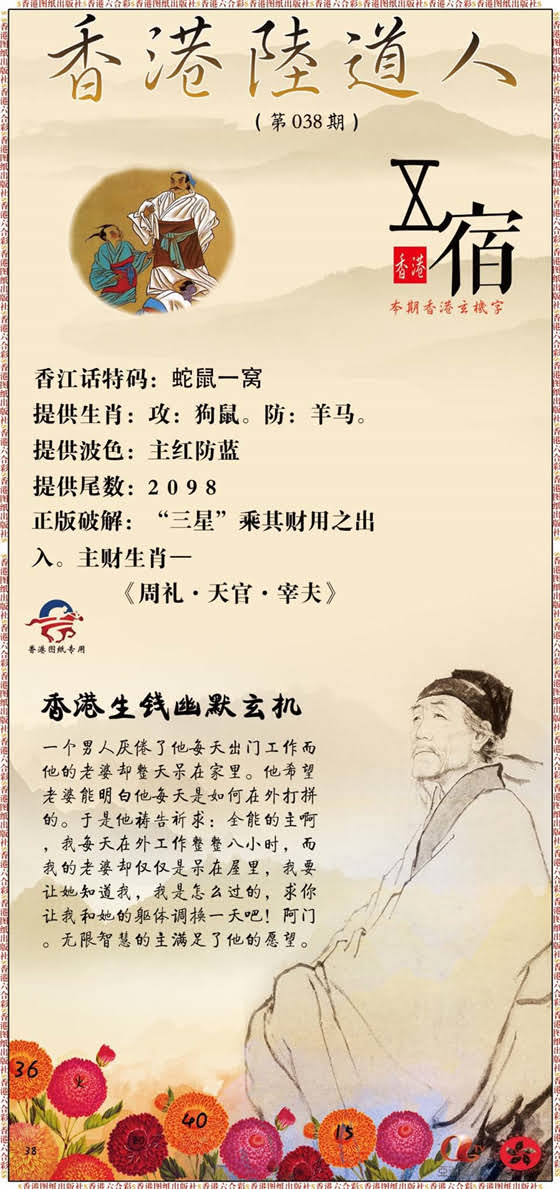 香港六合彩 香港图纸出版社
香港陸道人
(第038期)
宿
香港
本期香港玄機字
香江话特码：蛇鼠一窝
提供生肖：攻：狗鼠。防：羊马。
提供波色：主红防蓝
提供尾数：2098
正版破解：“三星”乘其财用之出
入。主财生肖—
《周礼·天官·宰夫》
香港图纸专用
香港生钱幽默玄机
一个男人厌倦了他每天出门工作而
他的老婆却整天呆在家里。他希望
老婆能明白他每天是如何在外打拼
的。于是他祷告祈求：全能的主啊
，我每天在外工作整整八小时，而
我的老婆却仅仅是呆在屋里，我要
让她知道我，我是怎么过的，求你
让我和她的躯体调换一天吧！阿门
。无限智慧的主满足了他的愿望。
36
火
40
15
38